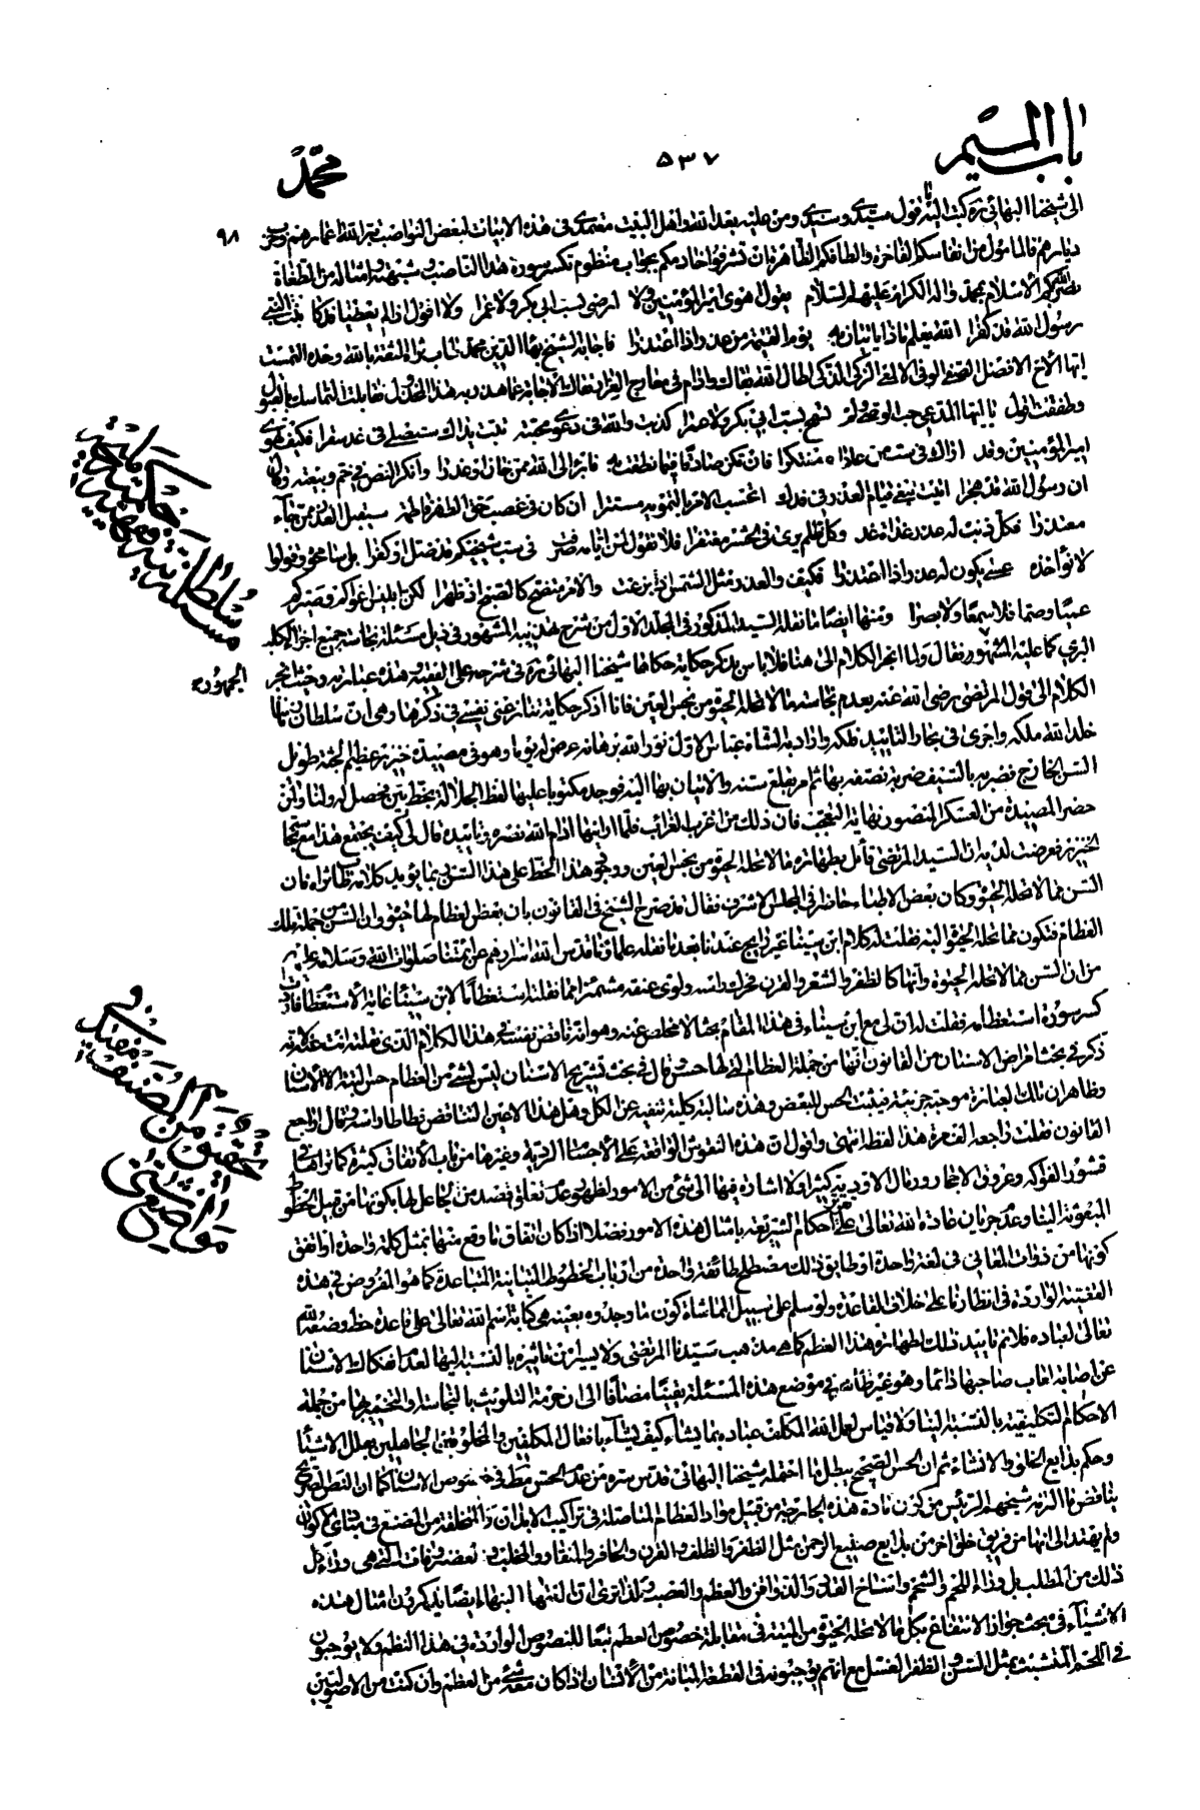 باب الميم
٥٣٧
محمد
٩٨
الى شيخنا البهائي ره كتب اليه يا قول سيدي وسندي ومن عليه بعد الله واهل البيت معتمدي في هذه الابيات لبعض النواصب بتر الله اعمارهم وخرب
ديارهم فالمأمول من انفاسكم الفاخرة والطافكم الظاهرة ان تشرفوا خادمكم بجواب منظوم تكسر سورة هذا الناصب وشبهته وامثاله من الطغاة
نصر الله بكم الاسلام بمحمد واله الكرام عليهم السلام يقول اهوى امير المؤمنين ولا ارضى لسب ابي بكر ولا عمرا ولا اقول اذا لم يعطيا فدكا بنت النبي
رسول الله قد كفرا الله يعلم ماذا ياتيان به يوم القيمة من عذر اذا اعتذرا فاجابه الشيخ بهاء الدين محمد تاب ثراه الثقة بالله وحده التمست
ايها الاخ الافضل الصفي الوفي الالمعي الزكي الذكي اطال الله بقاك وادام في معارج العز ارتقاك الاجابة عما هدر به هذا المخذول فقابلت التماسك بالقبول
وطفقت اقول يا ايها المدعي حب الوصي ولم تسمح بسب ابي بكر ولا عمرا كذبت والله في دعوى محبته تبت يداك ستصلى في غد سقرا فكيف تهوى
امير المؤمنين وقد اراك في سب من عاداه مفتكرا فان تكن صادقا فيما نطقت به فابرء الى الله ممن خان او غدرا وانكر النص في خم وبيعته وقال
ان رسول الله قد هجرا اتيت تبغي قيام العذر في فدك اتحسب الامر بالتمويه مستترا ان كان في غصب حق الطهر فاطمة سيقبل العذر ممن جاء
معتذرا فكل ذنب له عذر غداة غد وكل ظلم يرى في الحشر مغتفرا فلا تقول لمن ايامه صرفت في سب شيخيكم قد ضل او كفرا بل سامحوه وقولوا
لا نؤاخذه عسى يكون له عذر اذا اعتذرا فكيف والعذر مثل الشمس اذ بزغت والامر متضح كالصبح اذ ظهرا لكن ابليس اغواكم وصيركم
عميا وصما فلا سمعا ولا بصرا ومنها ايضا ما نقله السيد المذكور في المجلد الاول من شرح تهذيبه المشهور في ذيل مسئلة نجاسة جميع اجزاء الكلب
البري كما عليه المشهور فقال ولما انجر الكلام الى هنا فلا باس بذكر حكاية حكاها شيخنا البهائي ره في شرحه على الفقيه وهذه عبارته وحيث انجر
الجمهور
الكلام الى قول المرتضى رضي الله عنه بعدم نجاسة ما لا تحله الحيوة من نجس العين فانا اذكر حكاية تنازعني نفسي في ذكرها وهي ان سلطان زماننا
خلد الله ملكه واجرى في بحار التاييد فلكه واراد به الشاه عباس الاول نور الله برهانه عرض له يوما وهو في مصيده خنزير عظيم الجثة طويل
السن الخارج فضربه بالسيف ضربة نصفه بها ثم امر بقلع سنه والاتيان بها اليه فوجد مكتوبا عليها لفظ الجلالة بخط بين فحصل له ولنا ولمن
حضر المصيدة من العسكر المنصور نهاية التعجب فان ذلك من اغرب الغرائب فلما ارانيها ادام الله نصره وتاييده قال لي كيف يجتمع هذا مع نجاسة
الخنزير فعرضت لديه ان السيد المرتضى قائل بطهارة ما لا تحله الحيوة من نجس العين ووقوع هذا الخط على هذا السن ربما يؤيد كلامه طاب ثراه فان
السن مما لا تحله الحيوة وكان بعض الاطباء حاضرا في المجلس الاشرف فقال قد صرح الشيخ في القانون بان بعض العظام لها حيوة وان السن من جملة تلك
العظام فتكون مما تحله الحيوة البتة فقلت له كلام ابن سينا غير رايج عندنا بعد ما نقله علماؤنا قدس الله اسرارهم عن ائمتنا صلوات الله وسلامه عليهم
من ان السن مما لا تحله الحيوة وانها كالظفر والشعر والقرن فحرك راسه ولوى عنقه مشمئزا عما نقلته استعظاما لابن سينا غاية الاستعظام فاردت
كسر سورة استعظامه فقلت له ان لي مع ابن سيناء في هذا المقام بحثا لا مخلص عنه وهو انه ناقض نفسه في هذا الكلام الذي نقلته انت عنه لانه
ذكر في بحث امراض الاسنان من القانون انها من جملة العظام التي لها حس وقال في بحث تشريح الاسنان ليس لشيء من العظام حس البتة الا الاسنان
وظاهر ان تلك العبارة موجبة جزئية فيثبت الحس للبعض وهذه سالبة كلية تنفيه عن الكل وهل هذا الا عين التناقض فطاطا راسه وقال اراجع
القانون فقلت راجعه الف مرة هذا لفظه انتهى واقول ان هذه النقوش الواقعة على الاجسام الردية وغيرها من باب الاتفاق كثيرة كما تراها في
قشور الفواكه وعروق الاحجار ورمال الاودية كثيرا ولا اشارة فيها الى شيء من الامور لظهور عدم تعلق قصد من الجاعل لها بكونها من قبيل الخطوط
المبعوثة الينا وعدم جريان عادة الله تعالى على تعريف احكام الشريعة بامثال هذه الامور فضلا اذا كان اتفاق ما وقع منها بمثل كلمة واحدة او اتفق
كونها من ذوات المعاني في لغة واحدة او طابق ذلك مصطلح طائفة واحدة من ارباب الخطوط المتباينة المتباعدة كما هو المفروض في هذه
القضية الواردة في انظارنا على خلاف القاعدة ولو سلم على سبيل المماشاة كون ما وجدوه بعينه هي كتابة اسم الله تعالى على قاعدة خط وضعه الله
تعالى لعباده فلا ثم تاييد ذلك لطهارة هذا العظم كما هي مذهب سيدنا المرتضى ولا يسير من تاثيره بالنسبة اليها لعدم انفكاك الاسنان
عن اصابة لعاب صاحبها دائما وهو غير طاهر في موضع هذه المسئلة يقينا مضافا الى ان حرمة التلويث بالنجاسة والتحمير بها من جملة
الاحكام التكليفية بالنسبة الينا ولا قياس لعمل الله المكلف عباده بما يشاء كيف يشاء بافعال المكلفين والمخلوقين الجاهلين بعلل الاشياء
وحكم بدايع الخلق والانشاء ثم ان الحس الصحيح يبطل ما احتمله شيخنا البهائي قدس سره من عدم الحس مط في خصوص الاسنان كما ان النص الصريح
يناقض ما الزم به شيخهم الرئيس من كون مادة هذه الجارحة من قبيل مواد العظام المتاصلة في تراكيب الابدان والمتخلقة من الصنع في مبادي الاكوان
ولم يهتد الى انها من فريق خلق اخر من بدايع صنيع الرحمن مثل الظفر والظلف والقرن والحافر والمنقار والمخلب
ذلك من المطلب بل وراء اللحم والشحم وانتساخ العرق والدم والعظم والعصب ولذا ترى ان ائمتنا الفقهاء ايضا يذكرون امثال هذه
الاشياء في بحث جواز الانتفاع بكل ما لا تحله الحيوة من الميتة في مقابلة خصوص العظم تبعا للنصوص الواردة في هذا النظم ولا يوجبون
في اللحم المتشبث بمثل السن والظفر الغسل مع انهم يوجبونه في القطعة المبانة من الانسان اذا كان معه شيء من العظم وان كنت من الاصوليين